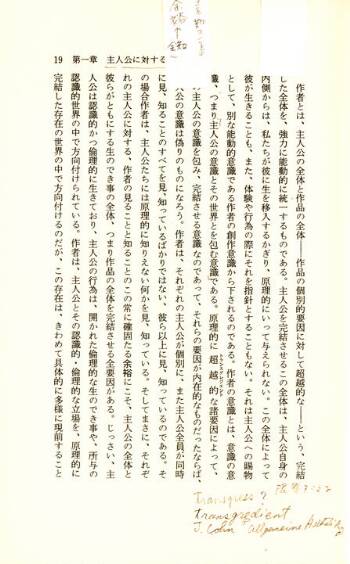 19 第一章 主人公に対する
作者とは、主人公の全体と作品の全体——作品の個別的要因に対して超越的な——という、完結
した全体を、強力に能動的に統一するものである。主人公を完結させるこの全体は、主人公自身の
内側からは、私たちが彼に生を移入するかぎり、原理的にいって与えられない。この全体によって
彼が生きることも、また、体験や行為の際にそれを指針とすることもない。それは主人公への賜物
として、別な能動的意識である作者の創作意識から下されるのである。作者の意識とは、意識の意
識、つまり主人公の意識とその世界とを包む意識である。原理的に超越的な諸要因によって、
主人公の意識を包み、完結させる意識なのであって、それらの要因が内在的なものだったならば、
公の意識は偽りのものになろう。作者は、それぞれの主人公が個別に、また主人公全員が同時
に見、知ることのすべてを見、知っているばかりではない。彼ら以上に見、知っているのである。そ
の場合作者は、主人公たちには原理的に知りえない何かを見、知っている。そしてまさに、それぞ
れの主人公に対する、作者の見ることと知ることのこの常に確固たる余裕にこそ、主人公の全体と
彼らがともにする生のでき事の全体、つまり作品の全体を完結させる全要因がある。じっさい、主
人公は認識的かつ倫理的に生きており、主人公の行為は、開かれた倫理的な生のでき事や、所与の
認識的世界の中で方向付けられている。作者は、主人公とその認識的・倫理的な立場を、原理的に
完結した存在の世界の中で方向付けるのだが、この存在は、きわめて具体的に多様に現前すること
transgress?
transgredient
J. Cohn "Allgemeine